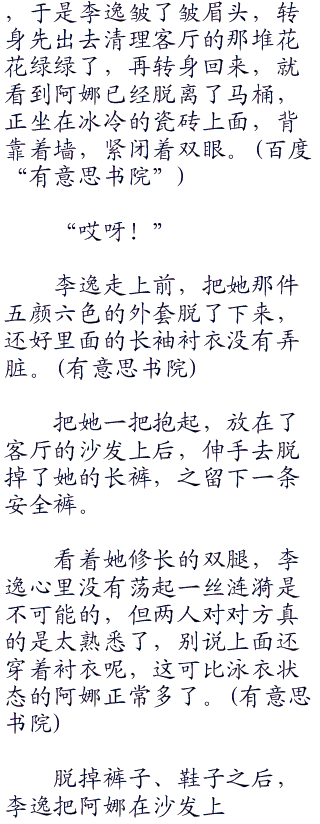 ，于是李逸皱了皱眉头，转
身先出去清理客厅的那堆花
花绿绿了，再转身回来，就
看到阿娜已经脱离了马桶，
正坐在冰冷的瓷砖上面，背
靠着墙，紧闭着双眼。(百度
“有意思书院”)
“哎呀！”
李逸走上前，把她那件
五颜六色的外套脱了下来，
还好里面的长袖衬衣没有弄
脏。(有意思书院)
把她一把抱起，放在了
客厅的沙发上后，伸手去脱
掉了她的长裤，之留下一条
安全裤。
看着她修长的双腿，李
逸心里没有荡起一丝涟漪是
不可能的，但两人对对方真
的是太熟悉了，别说上面还
穿着衬衣呢，这可比泳衣状
态的阿娜正常多了。(有意思
书院)
脱掉裤子、鞋子之后，
李逸把阿娜在沙发上